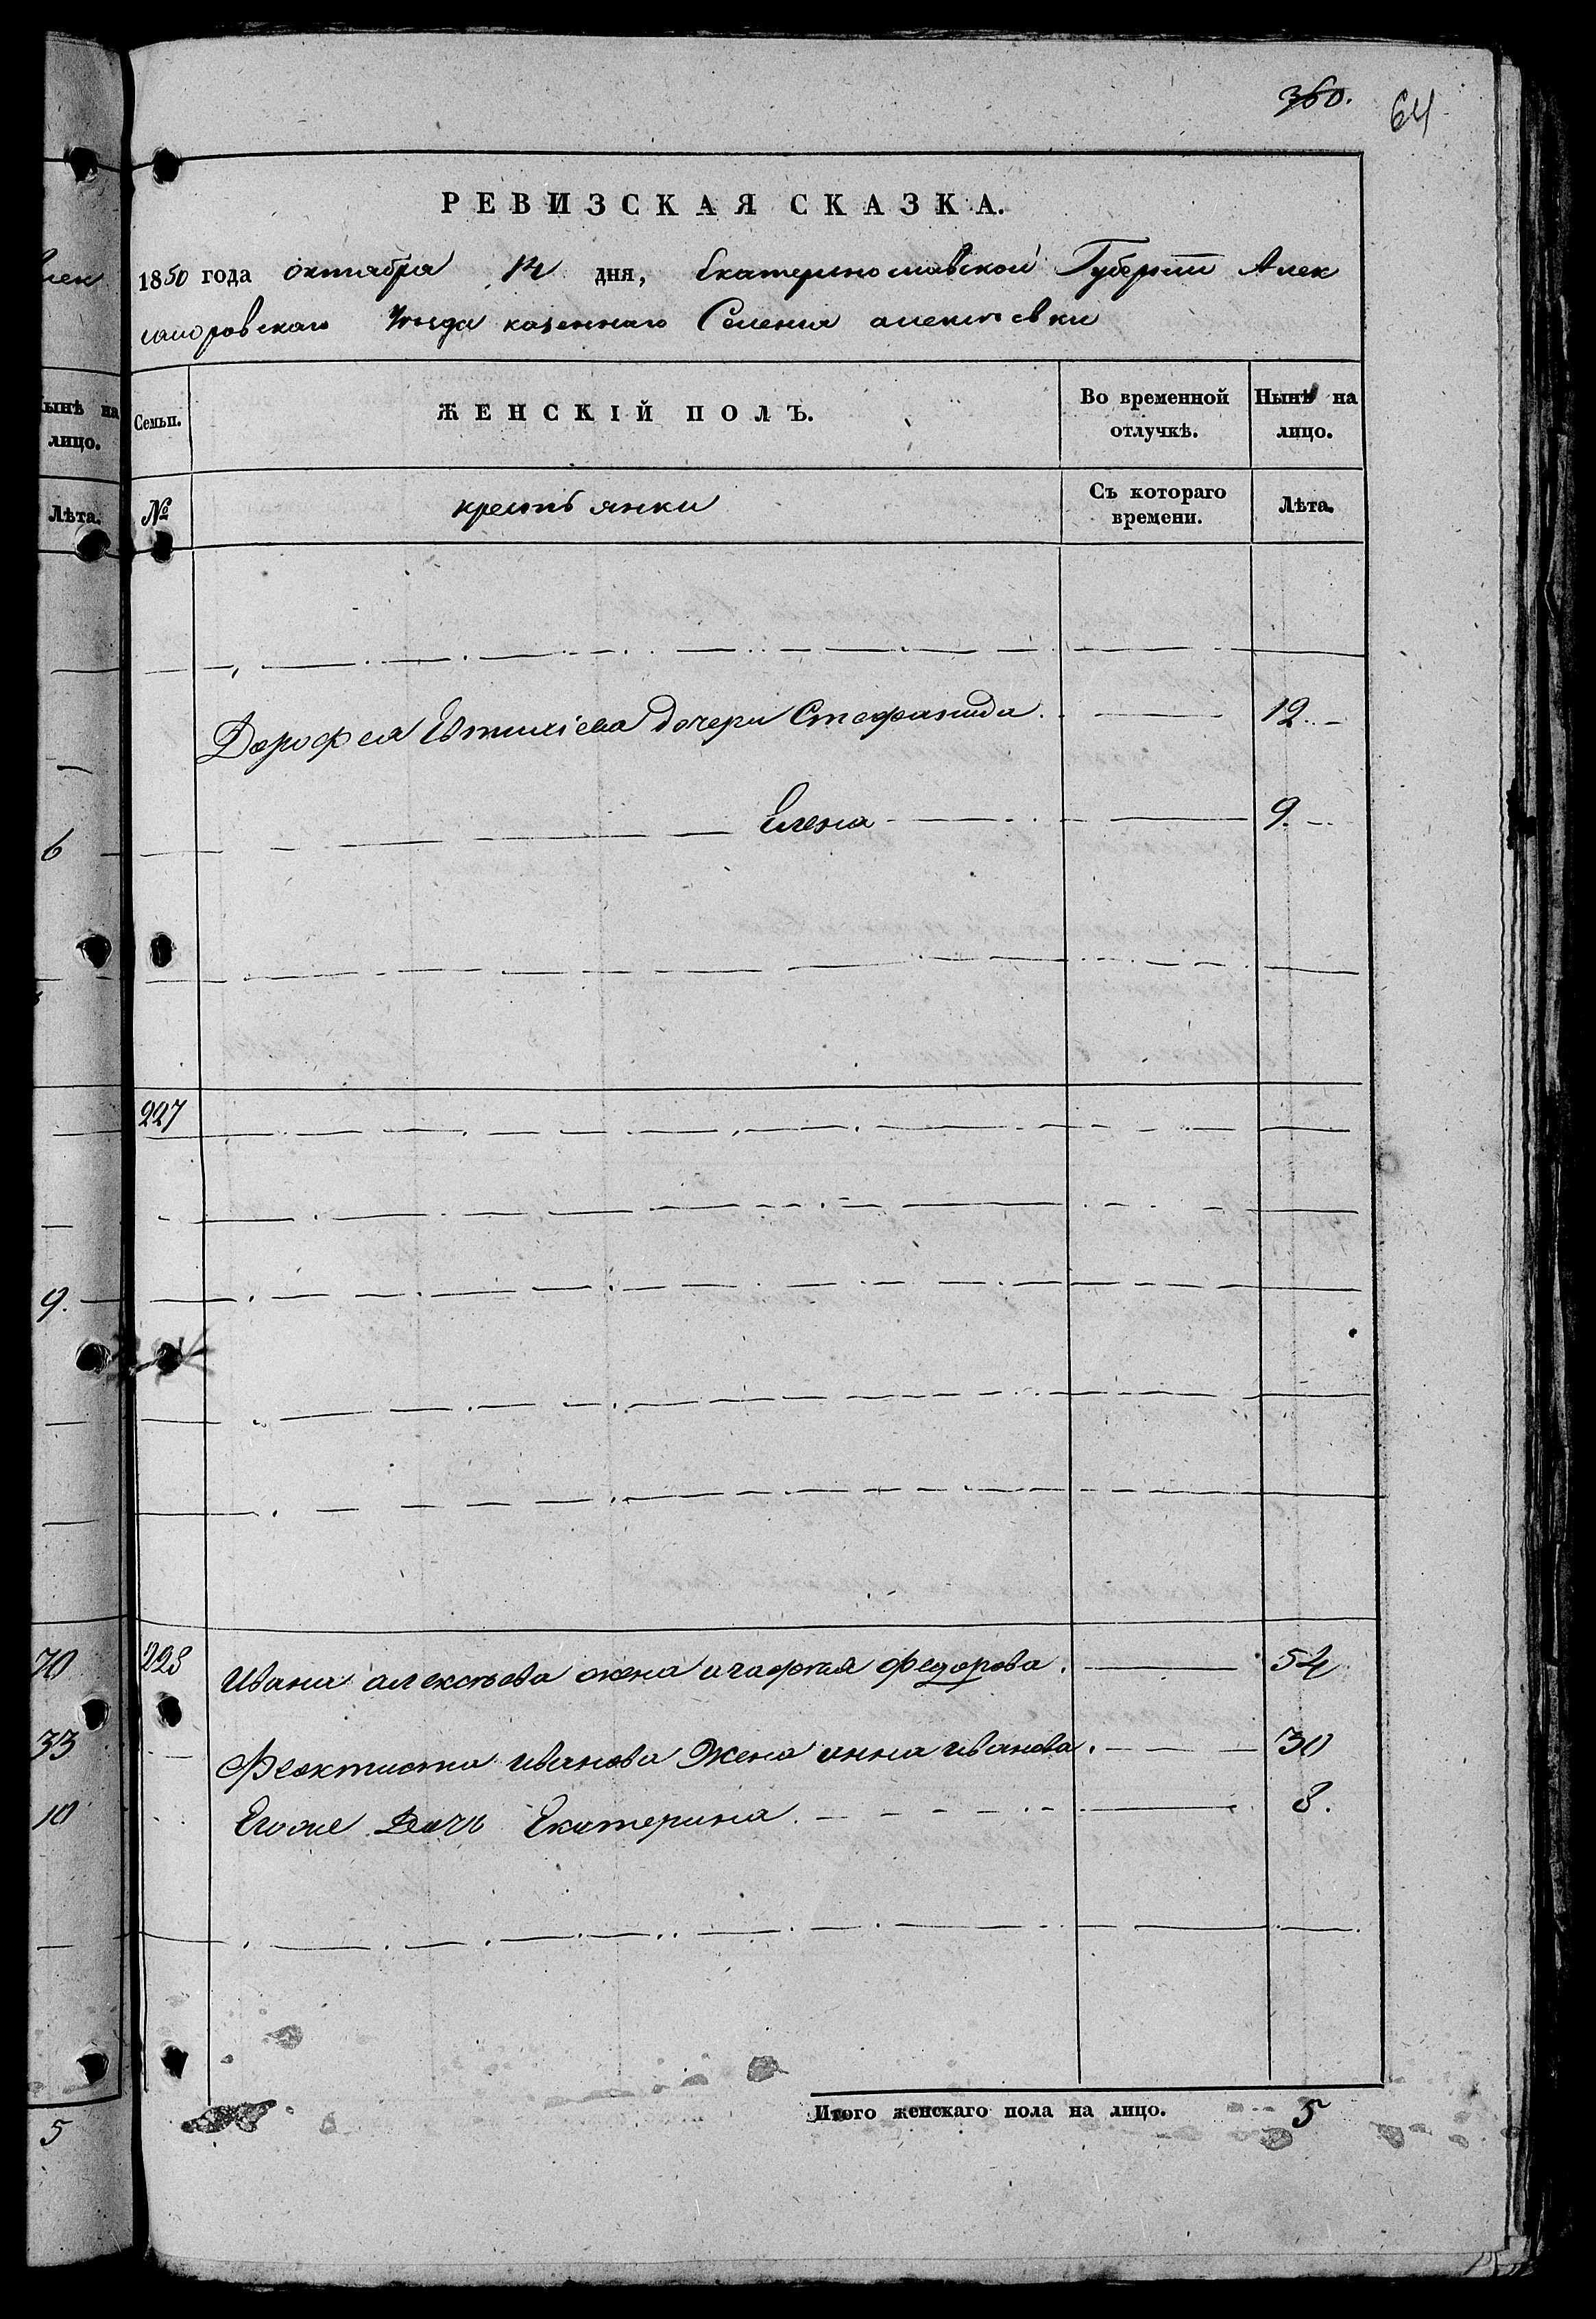 360.
64
РЕВИЗСКАЯ СКАЗКА.
1850 года октября 14 дня, Екатеринославской Губернии Алек
сандровскаго Уѣзда казеннаго Селения алексѣевки
Семьи.
ЖЕНСКІЙ ПОЛЪ.
Во временной отлучкѣ.
Нынѣ на лицо.
№
крестьянки
Съ котораго времени.
Лѣта.
Дорофея Евтихіева дочери Стефанида 12
Елена 9.
227
228 Ивана алексѣева жена агафия Федорова. 54
Феоктиста иванова Жена анна иванова. 30
Егоже Дочь Екатерина. 8.
Итого женскаго пола на лицо. 5
лек
Нынѣ на
лицо.
Лѣта.
6
9.
70
33
10
5